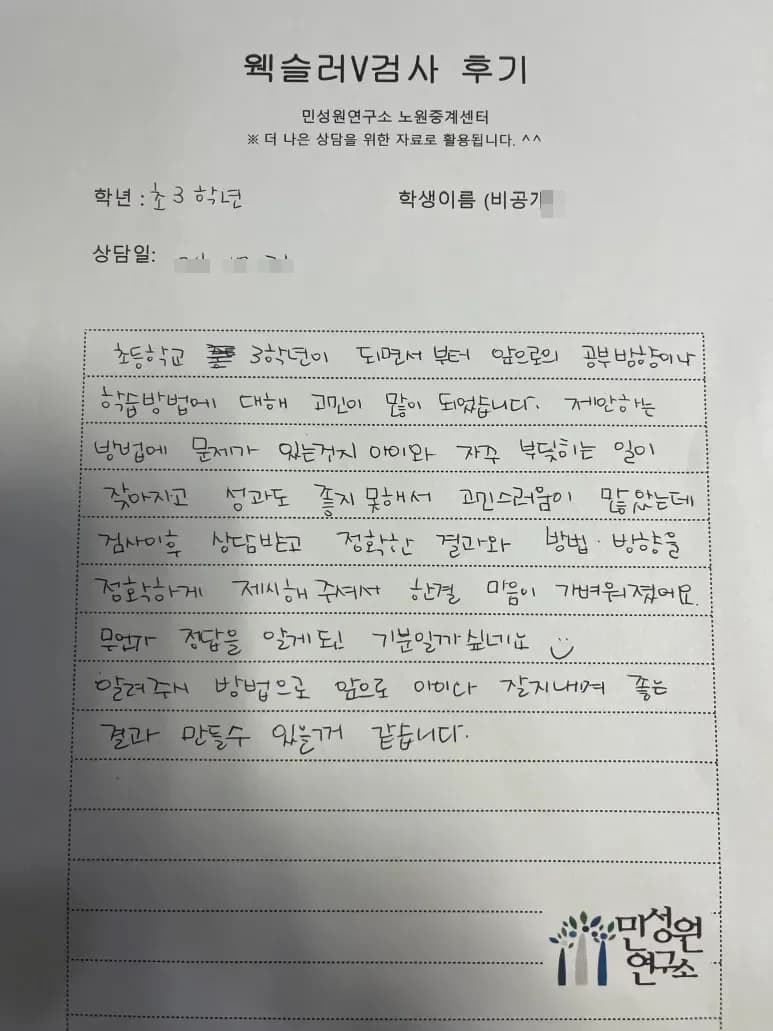 웩슬러V검사 후기
민성원연구소 노원중계센터
※ 더 나은 상담을 위한 자료로 활용됩니다. ^^
학년 : 초3 학년
학생이름 (비공개
상담일:
초등학교 3학년이 되면서 부터 앞으로의 공부방향이나
학습방법에 대해 고민이 많이 되었습니다. 제안하는
방법에 문제가 있는건지 아이와 자주 부딪히는 일이
잦아지고 성과도 좋지 못해서 고민스러움이 많았는데
검사이후 상담받고 정확한 결과와 방법·방향을
정확하게 제시해 주셔서 한결 마음이 가벼워졌어요.
무언가 정답을 알게된 기분일까 싶네요
알려주시 방법으로 앞으로 아이다 잘지내며 좋은
결과 만들수 있을거 같습니다.
민성원
연구소